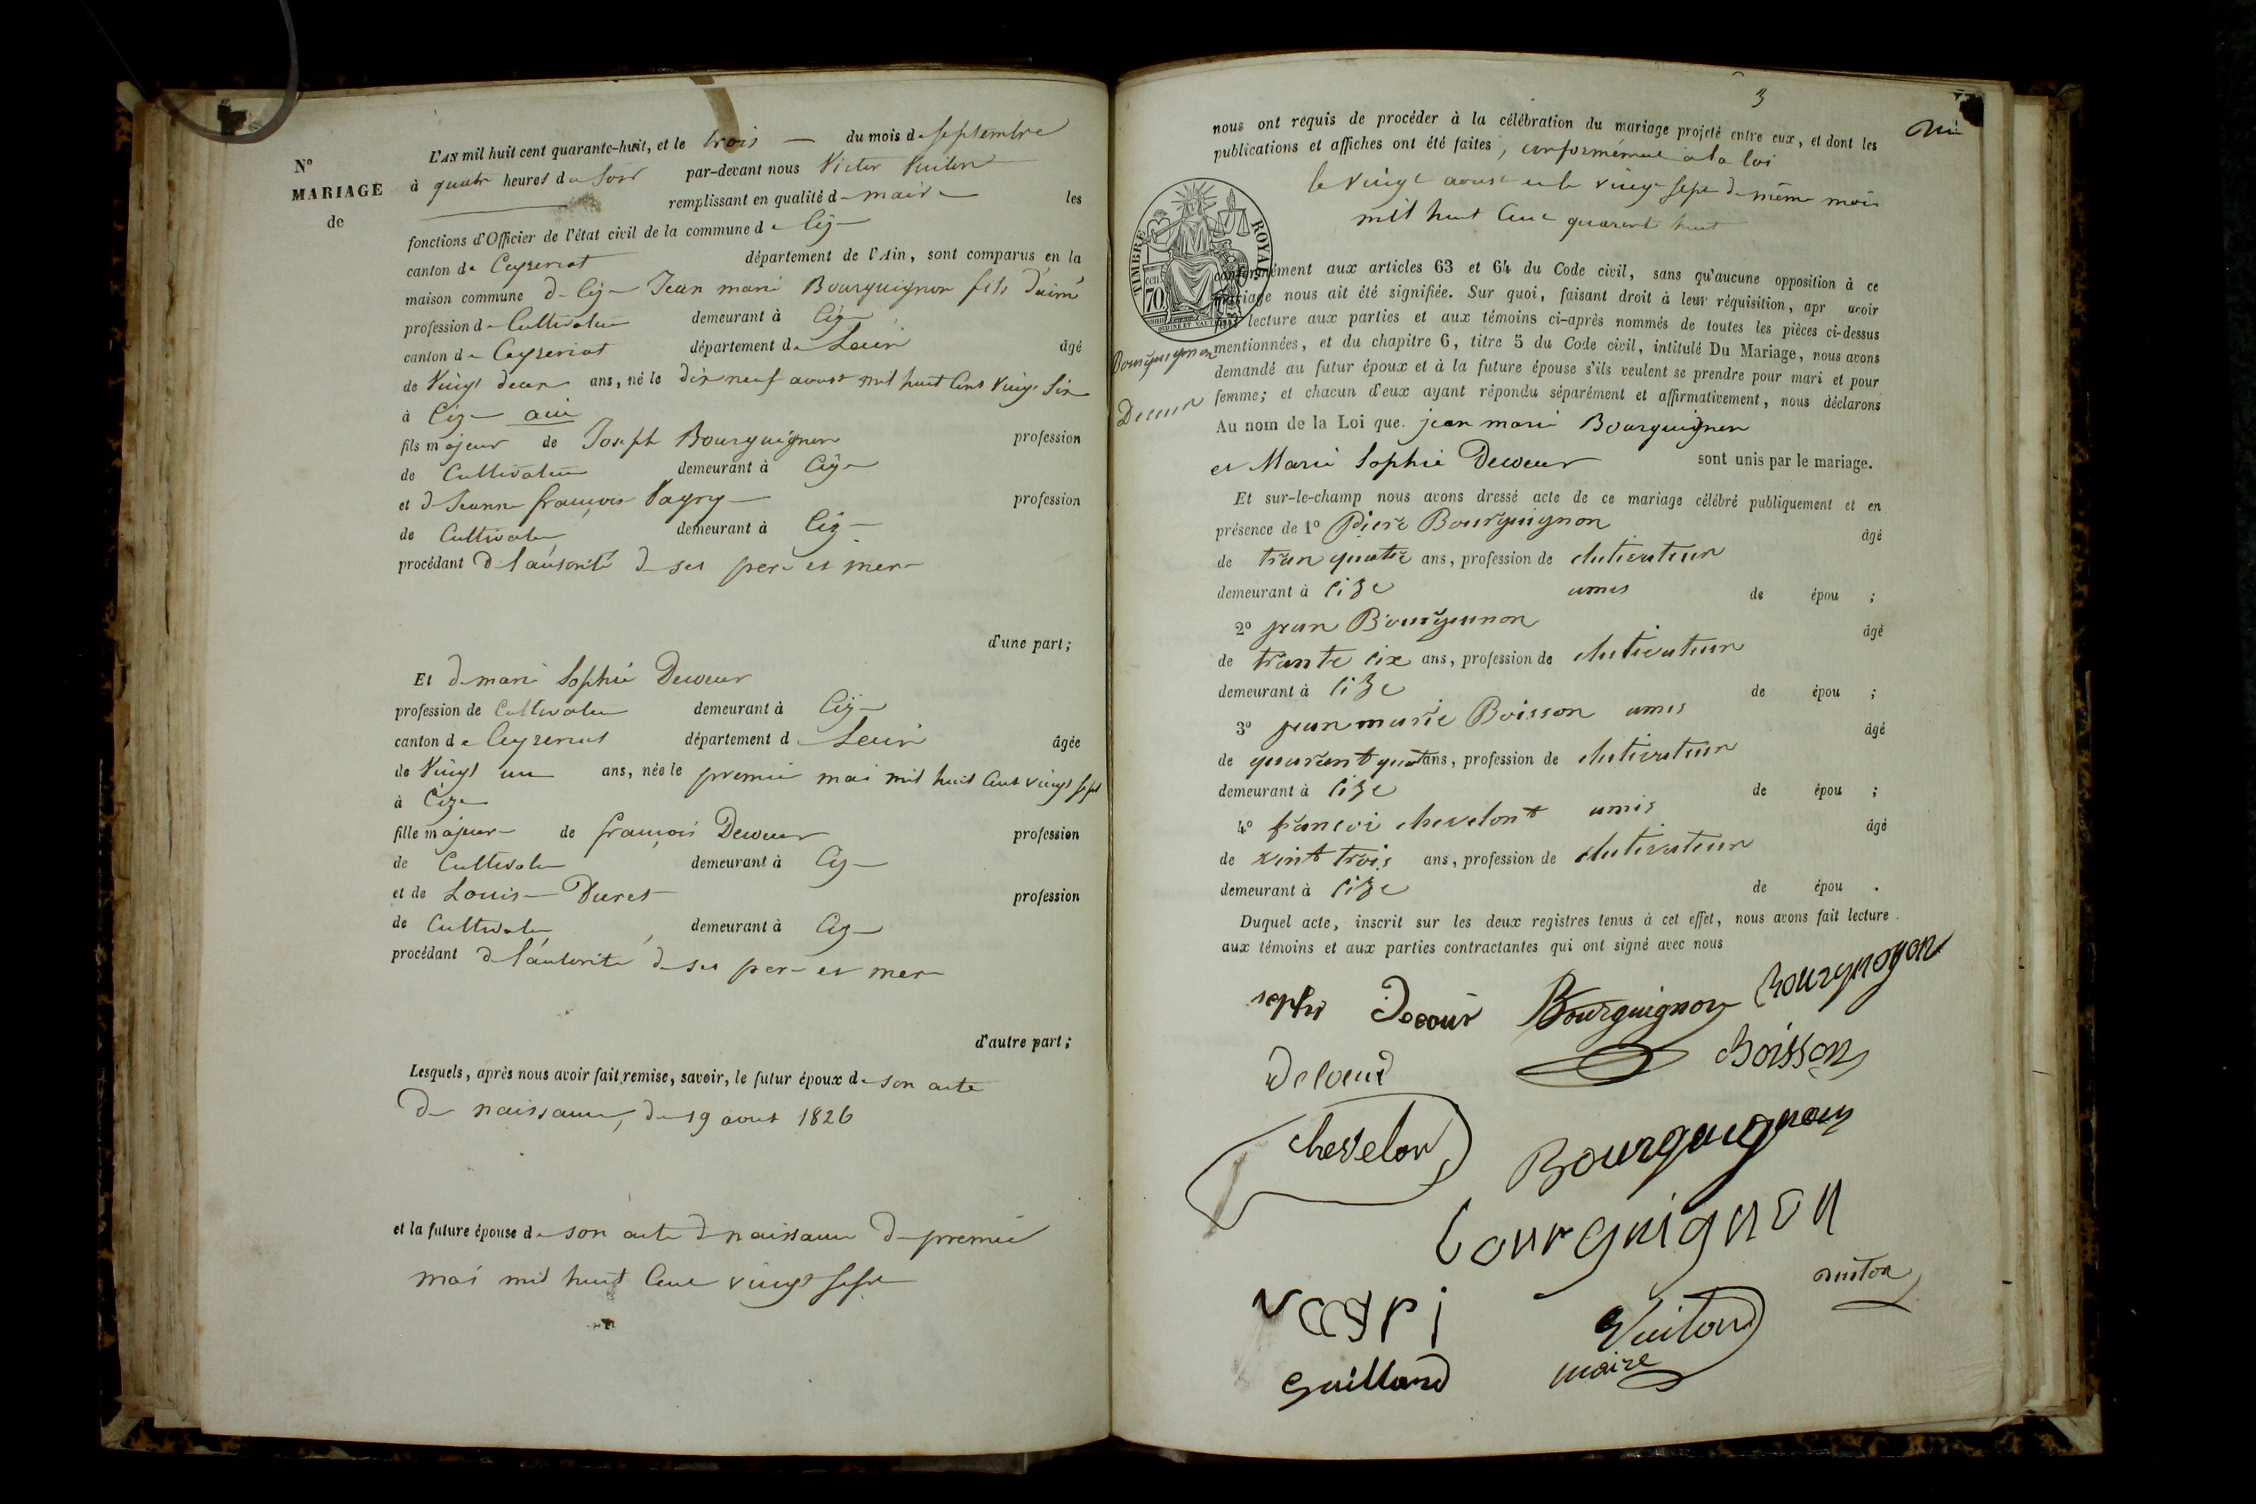 N°
MARIAGE
de
L'AN mil huit cent quarante-huit, et le trois — du mois de septembre
à quatre heures du Soir par-devant nous Victor Vuiton
remplissant en qualité de maire les
fonctions d'Officier de l'état civil de la commune de Cize
canton de Ceyzeriat département de l'Ain, sont comparus en la
maison commune de Cize Jean marie Bourguignon fils d'aimé
profession de Cultivateur demeurant à Cize
canton de Ceyzeriat département de Lain âgé
de Vingt deux ans, né le dix neuf aoust mil huit Cent Vingt Six
à Cize ain
fils majeur de Joseph Bourguignon profession
de Cultivateur demeurant à Cize
et de Jeanne françoise Vagry profession
de Cultivateur demeurant à Cize
procédant de l'autorité de ses pere et mere
d'une part;
Et de marie Sophie Decoeur
profession de Cultivateur demeurant à Cize
canton de Ceyzeriat département de Lain âgée
de Vingt un ans, née le premier mai mil huit Cent vingt sept
à Cize
fille majeure de françois Decoeur profession
de Cultivateur demeurant à Cize
et de Louise Duret profession
de Cultivateur demeurant à Cize
procédant de l'autorité de ses pere et mere
d'autre part;
Lesquels, après nous avoir fait remise, savoir, le futur époux de son acte
De naissance, du 19 aout 1826
et la future épouse de son acte de naissance du premier
mai mil huit Cent vingt sept
3
nous ont requis de procéder à la célébration du mariage projeté entre eux, et dont les
publications et affiches ont été faites, conformément a la loi
le vingt aoust et le vingt sept du même mois
mil huit Cent quarante huit
TIMBRE ROYAL
70
conformément aux articles 63 et 64 du Code civil, sans qu'aucune opposition à ce
mariage nous ait été signifiée. Sur quoi, faisant droit à leur réquisition, apr avoir
lecture aux parties et aux témoins ci-après nommés de toutes les pièces ci-dessus
mentionnées, et du chapitre 6, titre 5 du Code civil, intitulé Du Mariage, nous avons
demandé au futur époux et à la future épouse s'ils veulent se prendre pour mari et pour
femme; et chacun d'eux ayant répondu séparément et affirmativement, nous déclarons
Bourguignon
Decoeur
Au nom de la Loi que jean marie Bourguignon
et Marie Sophie Decoeur sont unis par le mariage.
Et sur-le-champ nous avons dressé acte de ce mariage célébré publiquement et en
présence de 1° Piere Bourguignon âgé
de tran quatre ans, profession de clutivateur
demeurant à Cize amis de épou ;
2° jean Bourguinon âgé
de trante six ans, profession de clutivateur
demeurant à Cize de épou ;
3° jean marie Boisson amis âgé
de quarant quat ans, profession de clutivateur
demeurant à Cize de épou ;
4° francoi chevelont amis âgé
de vint trois ans, profession de clutivateur
demeurant à Cize de épou .
Duquel acte, inscrit sur les deux registres tenus à cet effet, nous avons fait lecture
aux témoins et aux parties contractantes qui ont signé avec nous
sophi Decour Bourguignon Bourgnogon
Decoeur Boisson
chevelon Bourguignon
bourguignon
vagri Vuiton
Guilland maire